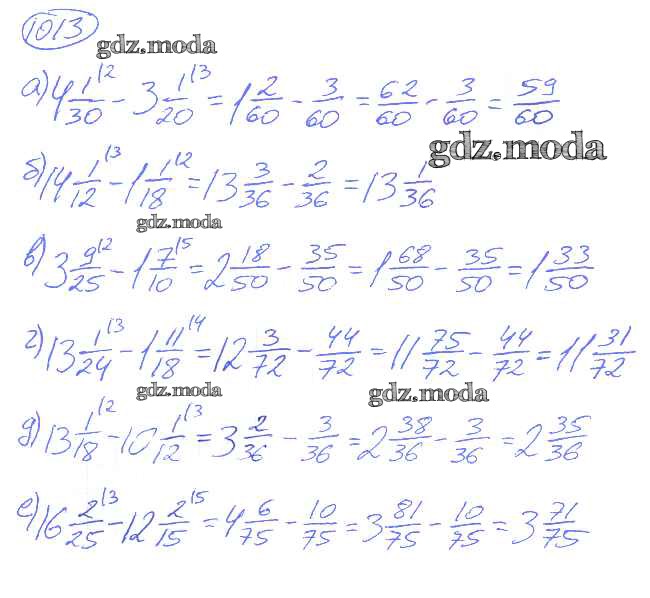 1013
gdz.moda
а) 4 1/30 |2 - 3 1/20 |3 = 1 2/60 - 3/60 = 62/60 - 3/60 = 59/60
gdz.moda
б) 14 1/12 |3 - 1 1/18 |2 = 13 3/36 - 2/36 = 13 1/36
gdz.moda
в) 3 9/25 |2 - 1 7/10 |5 = 2 18/50 - 35/50 = 1 68/50 - 35/50 = 1 33/50
г) 13 1/24 |3 - 1 11/18 |4 = 12 3/72 - 44/72 = 11 75/72 - 44/72 = 11 31/72
gdz.moda gdz.moda
д) 13 1/18 |2 - 10 1/12 |3 = 3 2/36 - 3/36 = 2 38/36 - 3/36 = 2 35/36
е) 16 2/25 |3 - 12 2/15 |5 = 4 6/75 - 10/75 = 3 81/75 - 10/75 = 3 71/75